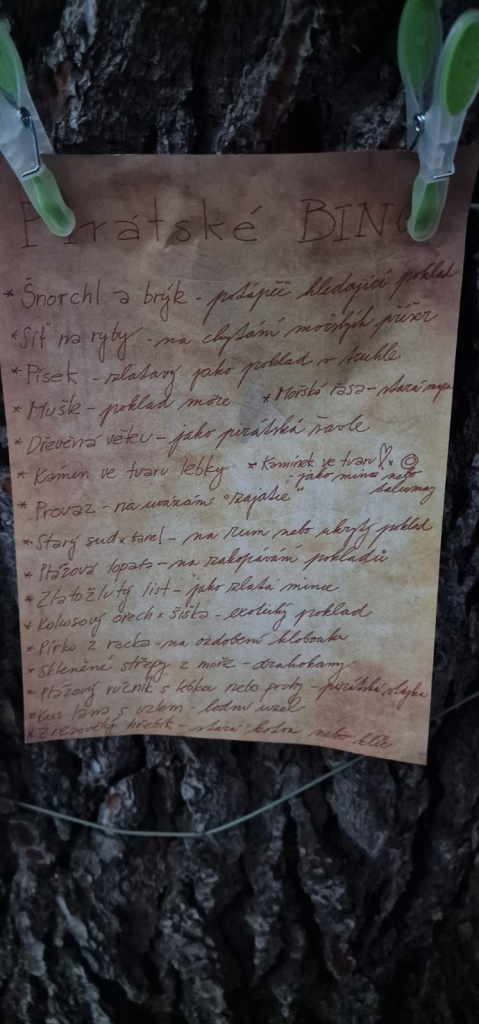 Pirátské BINGO
* Šnorchl a brýle - potápěč hledající poklad
* Síť na ryby - na chytání mořských příšer
* Písek - zlatavý jako poklad v truhle
* Mušle - poklad moře * Mořská řasa - stará mapa
* Dřevěná větev - jako pirátská šavle
* Kámen ve tvaru lebky * Kamínek ve tvaru ♡ × ◎
- jako mince nebo
talisman
* Provaz - na uvázání "zajatce"
* Starý sud × barel - na rum nebo ukrytý poklad
* Plážová lopata - na zakopávání pokladů
* Zlatožlutý list - jako zlatá mince
* Kokosový ořech × šiška - exotický poklad
* Pírko z racka - na ozdobení klobouku
* Skleněné střepy z moře - drahokamy
* Plážový ručník s lebkou nebo pruhy - pirátská vlajka
* Kus lana s uzlem - lodní uzel
* Zrezivělý hřebík - stará kotva nebo klíč